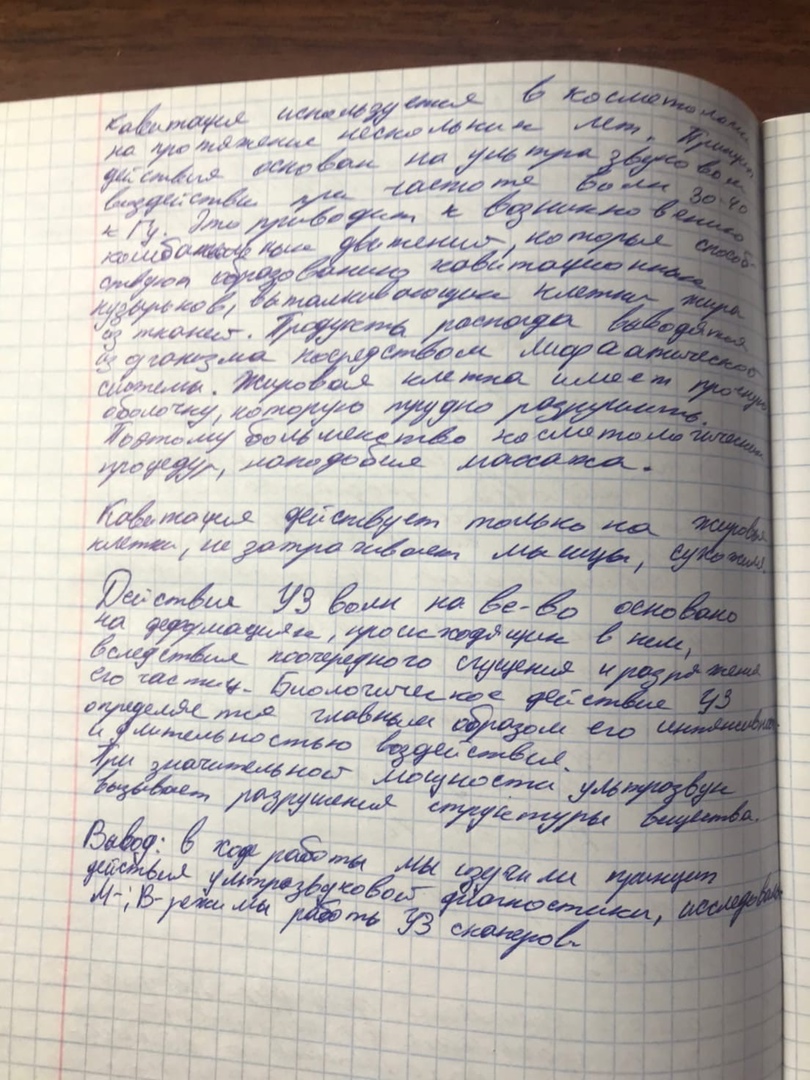 Кавитация используется в косметологии
на протяжение нескольких лет. Принцип
действия основан на ультразвуковом
воздействии при частоте волн 30-40
кГц. Это приводит к возникновению
движений, которые способ-
ствуют образованию кавитационных
пузырьков, выталкивающих клетки жира
из тканей. Продукты распада выводятся
из организма посредством
системы. Жировая клетка имеет прочную
оболочку, которую трудно разрушить.
Поэтому большинство косметологических
процедур, наподобия массажа.
Кавитация действует только на жировые
клетки, не затрачивает мышцы, сухожил.
Действия УЗ волн на ве-во основано
на деформациях, происходящих в нем,
вследствия поочередного сгущения и разряжения
его частиц. Биологическое действие УЗ
определяется главным образом его интенсивност-
и длительностью воздействия.
При значительной мощности ультразвук
вызывает разрушения структуры вещества.
Вывод: в ходе работы мы изучили принцип
действия ультразвуковой диагностики, исследовали
М-; В-режимы работы УЗ сканеров.